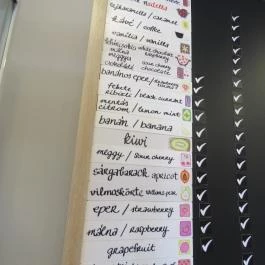 nutella
tejkaramella / caramel
kávé / coffee
vanília / vanilla
white chocolate
raspberry
málna
meggy
sour cherry
chocolate
banános eper /
fekete
ribizli / black currant
mentás
citrom / lemon mint
banán / banana
kiwi
meggy / sour cherry
sárgabarack apricot
vilmoskörte williams pear
eper / strawberry
málna / raspberry
grapefruit